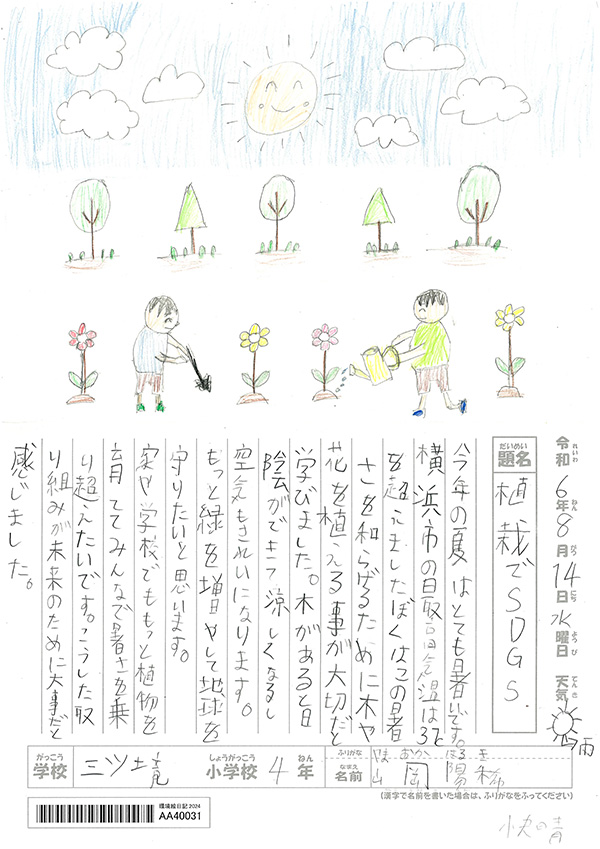 令和6年8月14日水曜日 天気 雨
れいわ ねん がつ にち ようび てんき
だいめい
題名
植栽でSDGS.
今年の夏はとても暑いです。
横浜市の最高気温は37ど
を超えましたぼくはこの暑
さを和らげるために木や
花を植える事が大切だと
学びました。木があると日
陰ができて涼しくなるし
空気もきれいになります。
もっと緑を増やして地球を
守りたいと思います。
家や学校でももっと植物を
育ててみんなで暑さを乗
り超えたいです。こうした取
り組みが未来のために大事だと
感じました。
がっこう しょうがっこう ねん ふりがな やまおか はるき
学校 三ツ境 小学校 4年 なまえ 名前 山岡陽
(漢字で名前を書いた場合は、ふりがなをふってください)
環境絵日記2024
AA40031